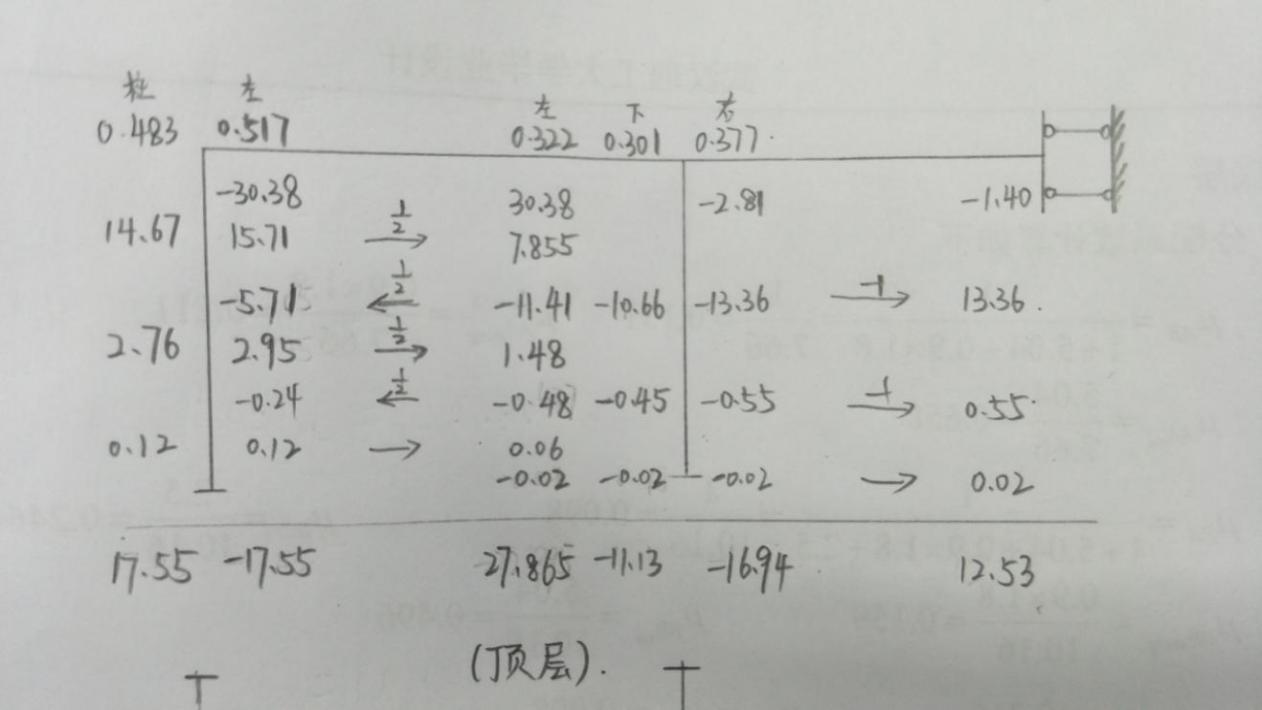 柱 左 左 下 右
0.483 0.517 0.322 0.301 0.377
-30.38 30.38 -2.81 -1.40
14.67 15.71 1/2 7.855
-5.71 1/2 -11.41 -10.66 -13.36 -1 13.36
2.76 2.95 1/2 1.48
-0.24 1/2 -0.48 -0.45 -0.55 -1 0.55
0.12 0.12 → 0.06
-0.02 -0.02 -0.02 → 0.02
17.55 -17.55 27.865 -11.13 -16.94 12.53
(顶层).